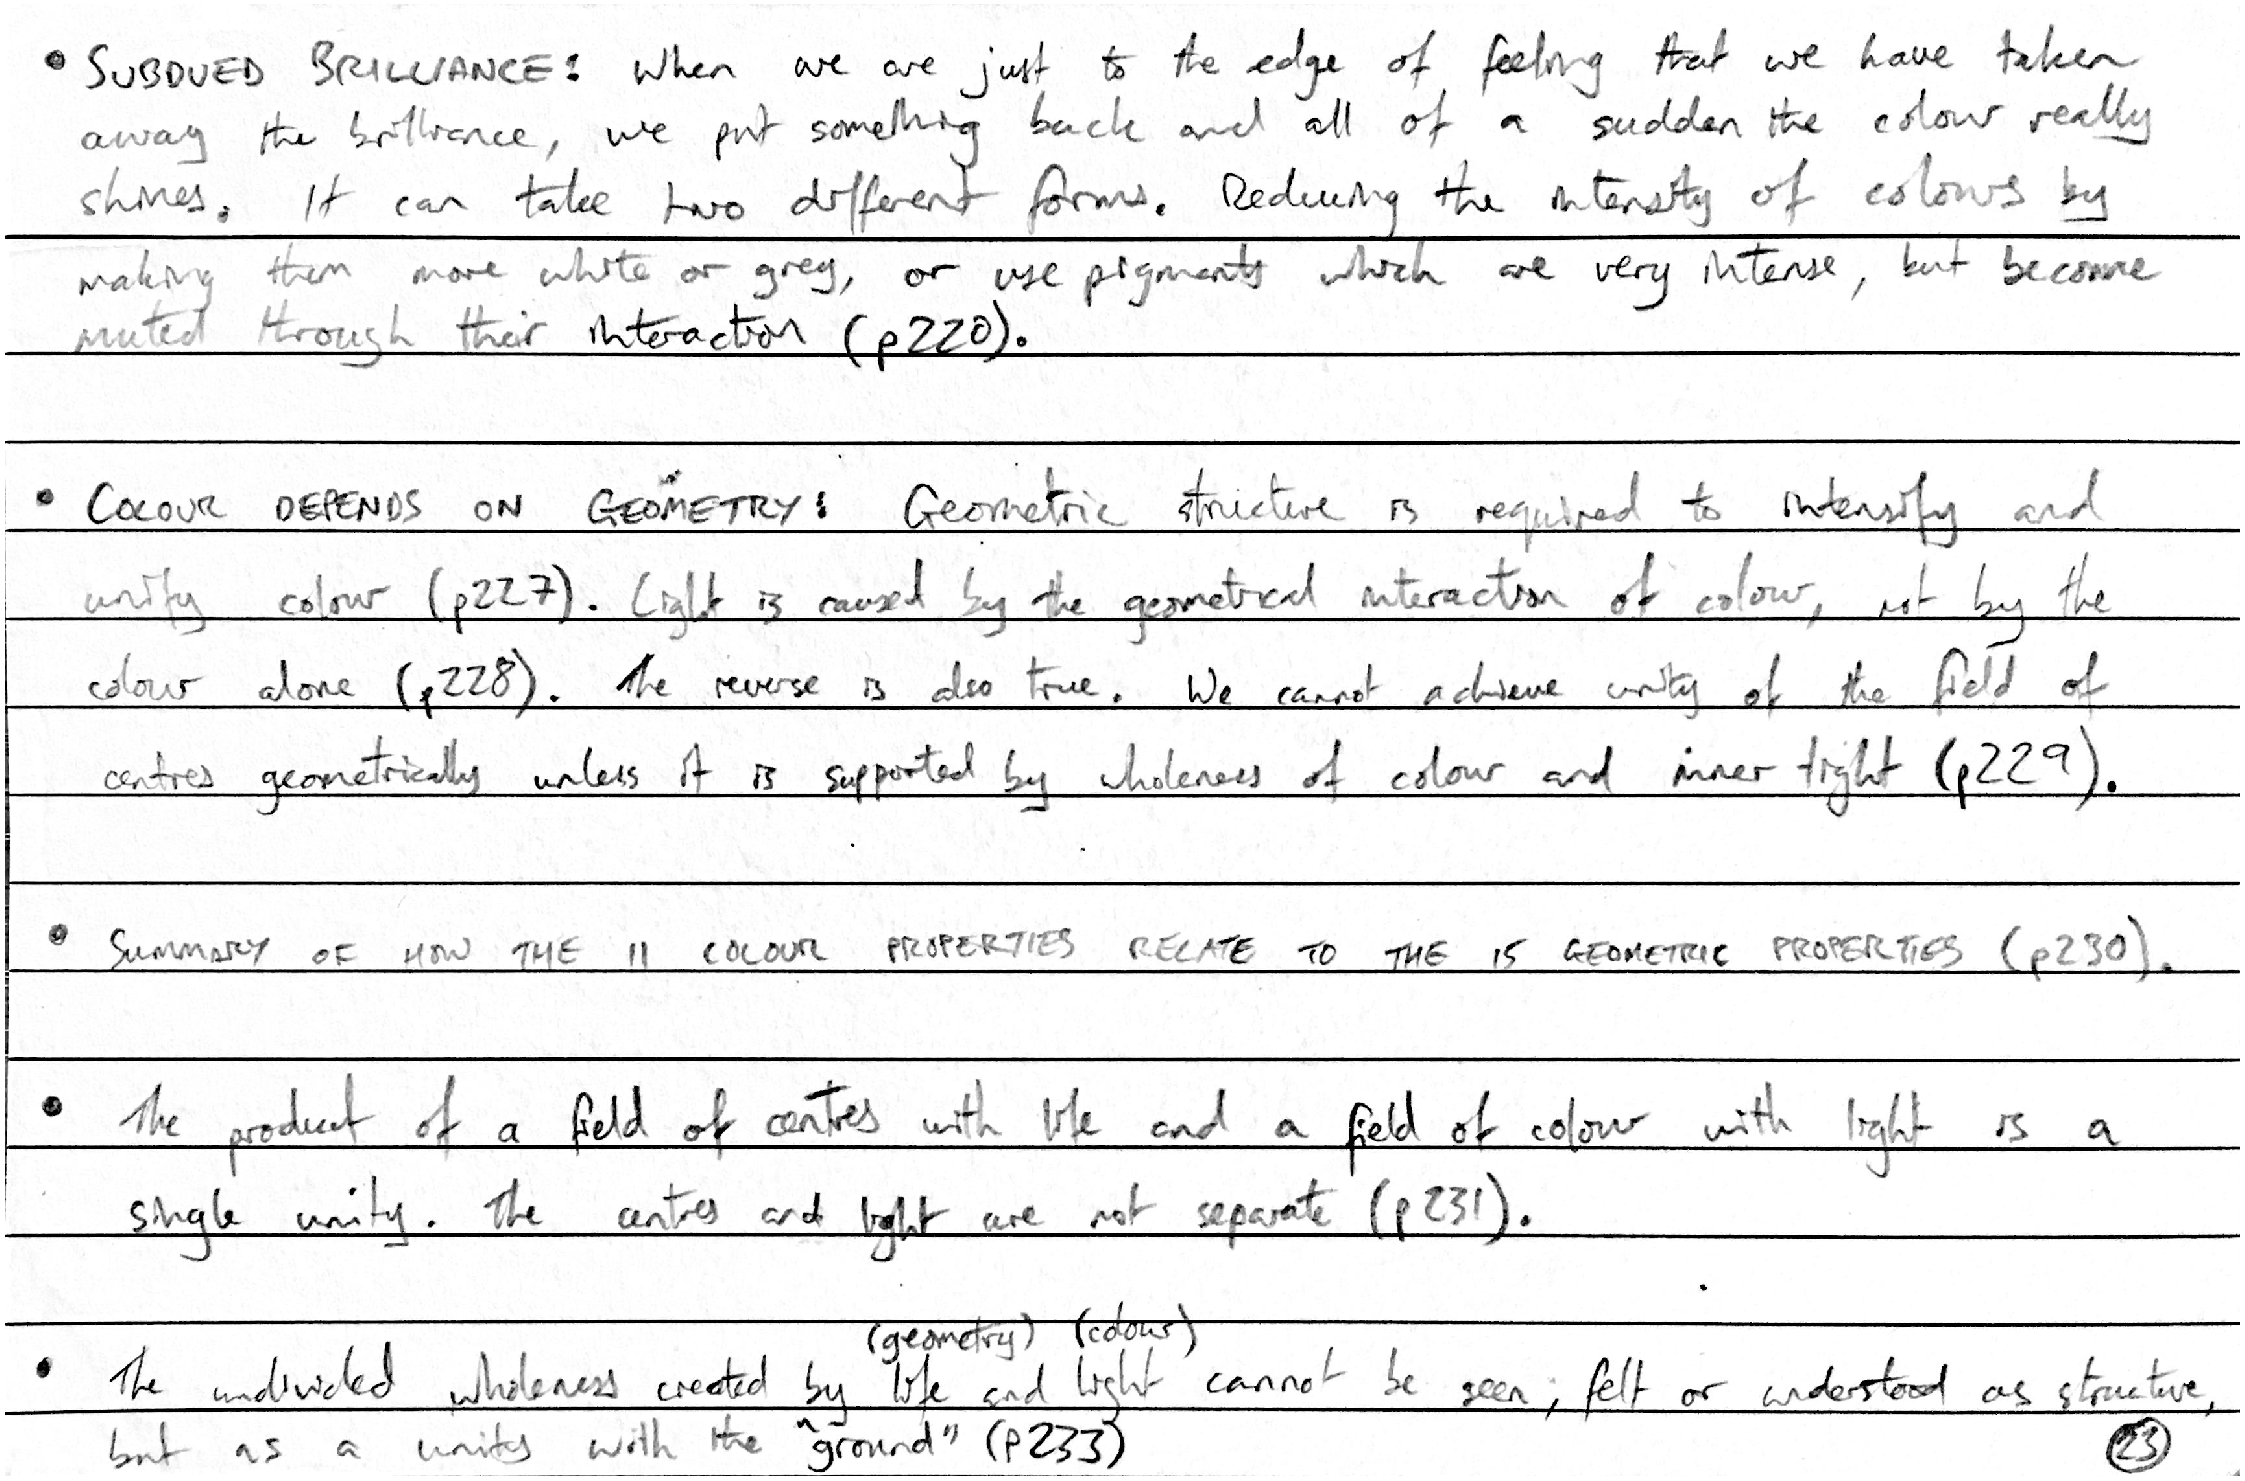 • SUBDUED BRILLIANCE: When we are just to the edge of feeling that we have taken
away the brilliance, we put something back and all of a sudden the colour really
shines. It can take two different forms. Reducing the intensity of colours by
making them more white or grey, or use pigments which are very intense, but become
muted through their interaction (p220).
• COLOUR DEPENDS ON GEOMETRY: Geometric structure is required to intensify and
unify colour (p227). Light is caused by the geometrical interaction of colour, not by the
colour alone (p228). The reverse is also true. We cannot achieve unity of the field of
centres geometrically unless it is supported by wholeness of colour and inner light (p229).
• SUMMARY OF HOW THE 11 COLOUR PROPERTIES RELATE TO THE 15 GEOMETRIC PROPERTIES (p230).
• The product of a field of centres with life and a field of colour with light is a
single unity. The centres and light are not separate (p231).
(geometry) (colour)
• The undivided wholeness created by life and light cannot be seen, felt or understood as structure,
but as a unity with the "ground" (p233)
23